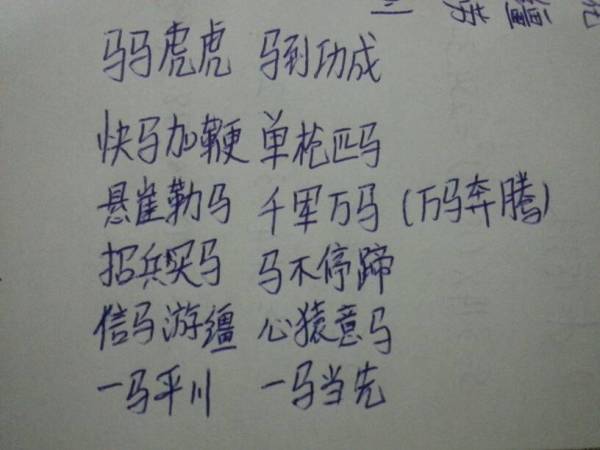 马马虎虎 马到功成
快马加鞭 单枪匹马
悬崖勒马 千军万马（万马奔腾）
招兵买马 马不停蹄
信马游缰 心猿意马
一马平川 一马当先